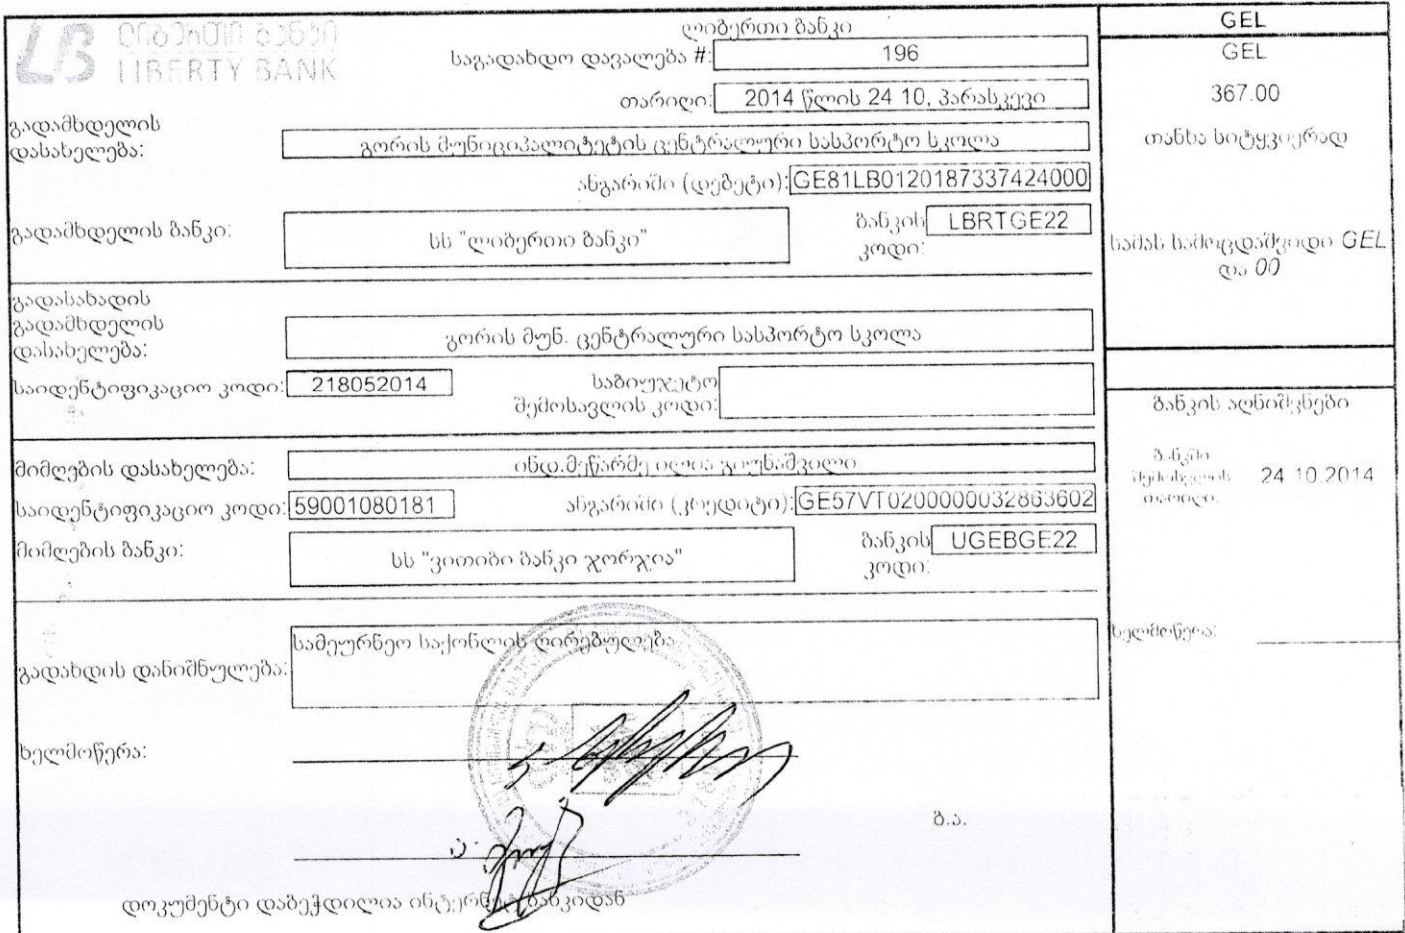 ლიბერთი ბანკი
LIBERTY BANK
ლიბერთი ბანკი
საგადახდო დავალება #: 196
თარიღი: 2014 წლის 24 10, პარასკევი
გადამხდელის
დასახელება: გორის მუნიციპალიტეტის ცენტრალური სასპორტო სკოლა
ანგარიში (დებეტი): GE81LB0120187337424000
გადამხდელის ბანკი: სს "ლიბერთი ბანკი"
ბანკის
კოდი: LBRTGE22
გადასახადის
გადამხდელის
დასახელება: გორის მუნ. ცენტრალური სასპორტო სკოლა
საიდენტიფიკაციო კოდი: 218052014
საბიუჯეტო
შემოსავლის კოდი:
მიმღების დასახელება: ინდ.მეწარმე ილია
საიდენტიფიკაციო კოდი: 59001080181
ანგარიში (კრედიტი): GE57VT0200000032863602
მიმღების ბანკი: სს "ვითიბი ბანკი ჯორჯია"
ბანკის
კოდი: UGEBGE22
გადახდის დანიშნულება: სამეურნეო საქონლის ღირებულება
ხელმოწერა:
ბ.ა.
დოკუმენტი დაბეჭდილია ინტერნეტ ბანკიდან
GEL
GEL
367.00
თანხა სიტყვიერად
სამას სამოცდაშვიდი GEL
და 00
ბანკის აღნიშვნები
ბანკში
შემოსვლის
თარიღი: 24 10.2014
ხელმოწერა: